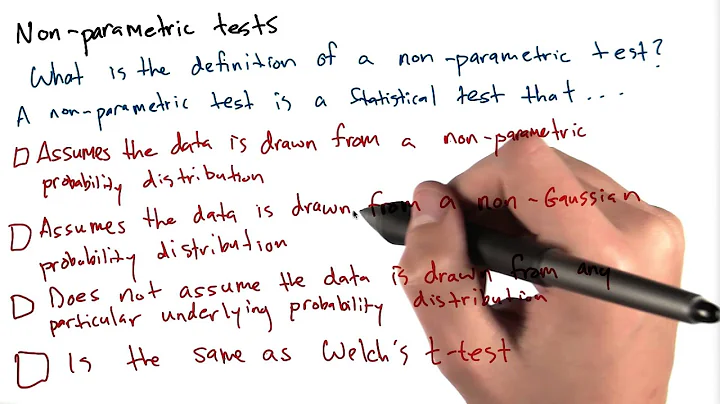 Non-parametric tests
What is the definition of a non-parametric test?
A non-parametric test is a statistical test that...
Assumes the data is drawn from a non-parametric
probability distribution
Assumes the data is drawn from a non-Gaussian
probability distribution
Does not assume the data is drawn from any
particular underlying probability distribution
Is the same as Welch's t-test